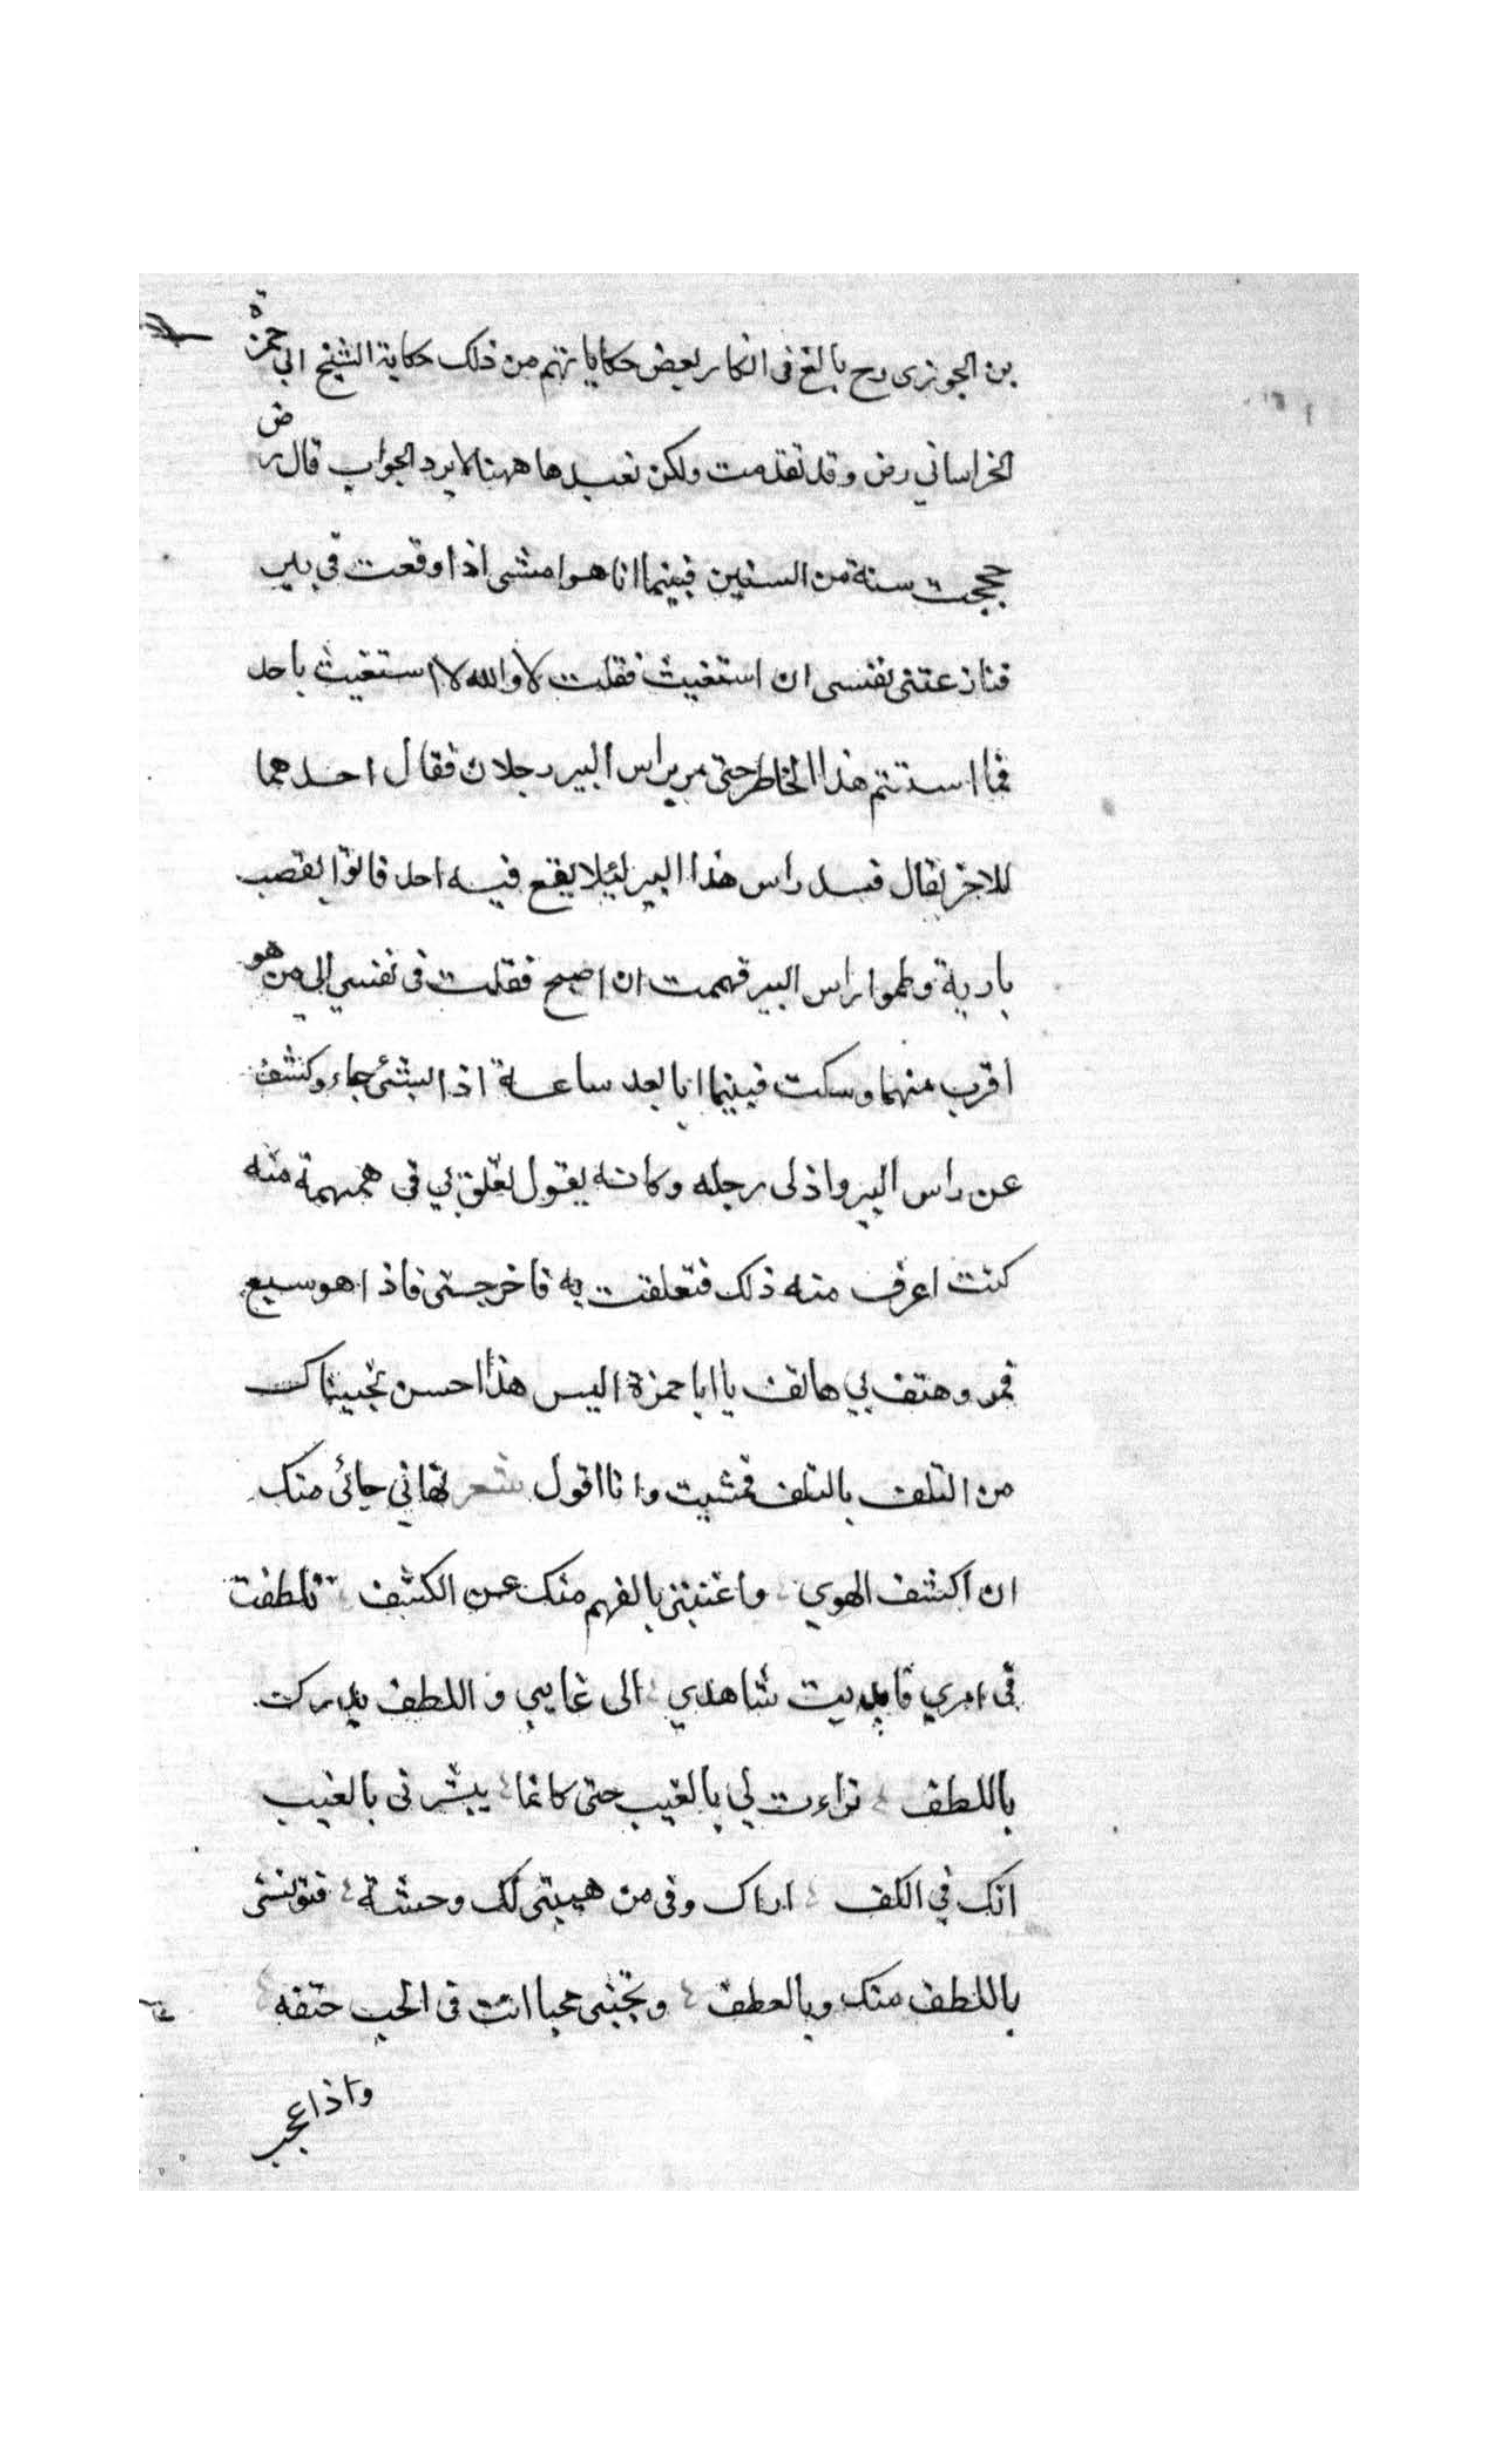 بن الجوزى رح بالغ فى انكار بعض حكاياتهم من ذلك حكاية الشيخ ابي حمزة
الخراساني رض وقد تقدمت ولكن نعيدها ههنا لايرد الجواب قال رض
حججت سنة من السنين فبينما انا هو امشى اذا وقعت فى بير
فنازعتنى نفسى ان استغيث فقلت لا والله لا استغيث باحد
فما استتم هذا الخاطر حتى مر براس البير رجلان فقال احدهما
للاخر تعال نسد راس هذا البير ليلا يقع فيه احد فاتوا بقصب
بارية وطموا راس البير فهممت ان اصيح فقلت فى نفسي الى من هو
اقرب منهما وسكت فبينما انا بعد ساعة اذا بشئ جاء وكشف
عن راس البير وادلى رجله وكانه يقول تعلق بي فى همهمة منه
كنت اعرف منه ذلك فتعلقت به فاخرجنى فاذا هو سبع
فمر وهتف بي هاتف يا ابا حمزة اليس هذا احسن نجيناك
من التلف بالتلف فمشيت وانا اقول شعر نهاني حيائى منك
ان اكشف الهوي واغنيتنى بالفهم منك عن الكشف تلطفت
فى امري فابديت شاهدي الى غايبي واللطف يدرك
باللطف تراءت لي بالغيب حتى كانما يبشرنى بالغيب
انك في الكف اراك وفى من هيبتى لك وحشة فتونسنى
باللطف منك وبالعطف وتحيى محبا انت فى الحب حتفه
واذا عجب